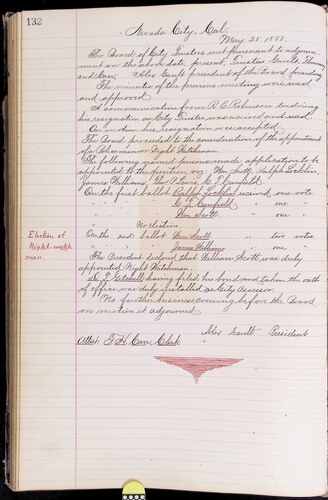 132
Nevada City, Cal.
May 28 1888.
The Board of City Trustees met pursuant to adjourn
ment on the above date present Trustees Gault,
and Carr. Alex Gault president of the Board presiding
The minutes of the previous meeting were read
and approved
A communication from R. C. Robinson tendering
his resignation as City Trustee was received and read
On motion his resignation was accepted.
The Board proceeded to the consideration of the appointment
of a Policeman or Night Watchman.
The following named persons made application to be
appointed to the position viz: Wm Scott, Ralph
James Williams, & C. J. Canfield
On the first ballot Ralph received one vote
" " " " C. J. Canfield " one "
" " " " Wm Scott " one "
No election
Election of
Night watch
man.
On the 2nd ballot Wm Scott " two votes
" " " " James Williams " one "
The President declared that William Scott was duly
appointed Night Watchman.
having filed his bond and taken the oath
of office was duly installed as City Assessor
No further business coming before the Board
on motion it adjourned
Alex Gault President
Attest T. H. Carr, Clerk